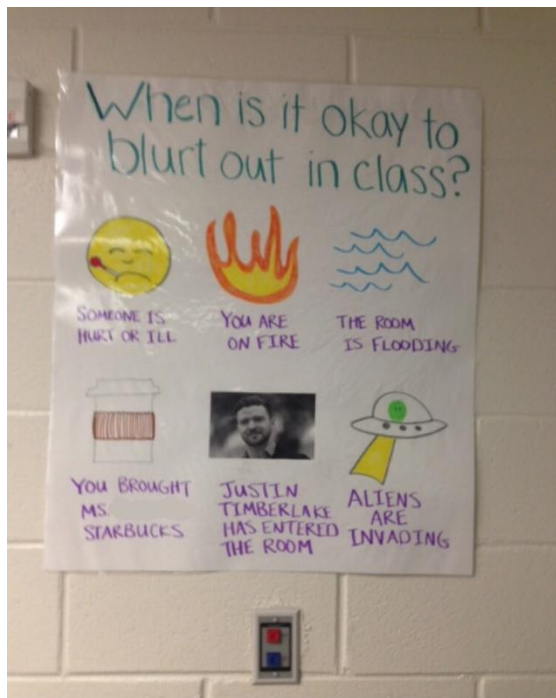 When is it okay to
blurt out in class?
SOMEONE IS
HURT OR ILL
YOU ARE
ON FIRE
THE ROOM
IS FLOODING
YOU BROUGHT
MS.
STARBUCKS
JUSTIN
TIMBERLAKE
HAS ENTERED
THE ROOM
ALIENS
ARE
INVADING